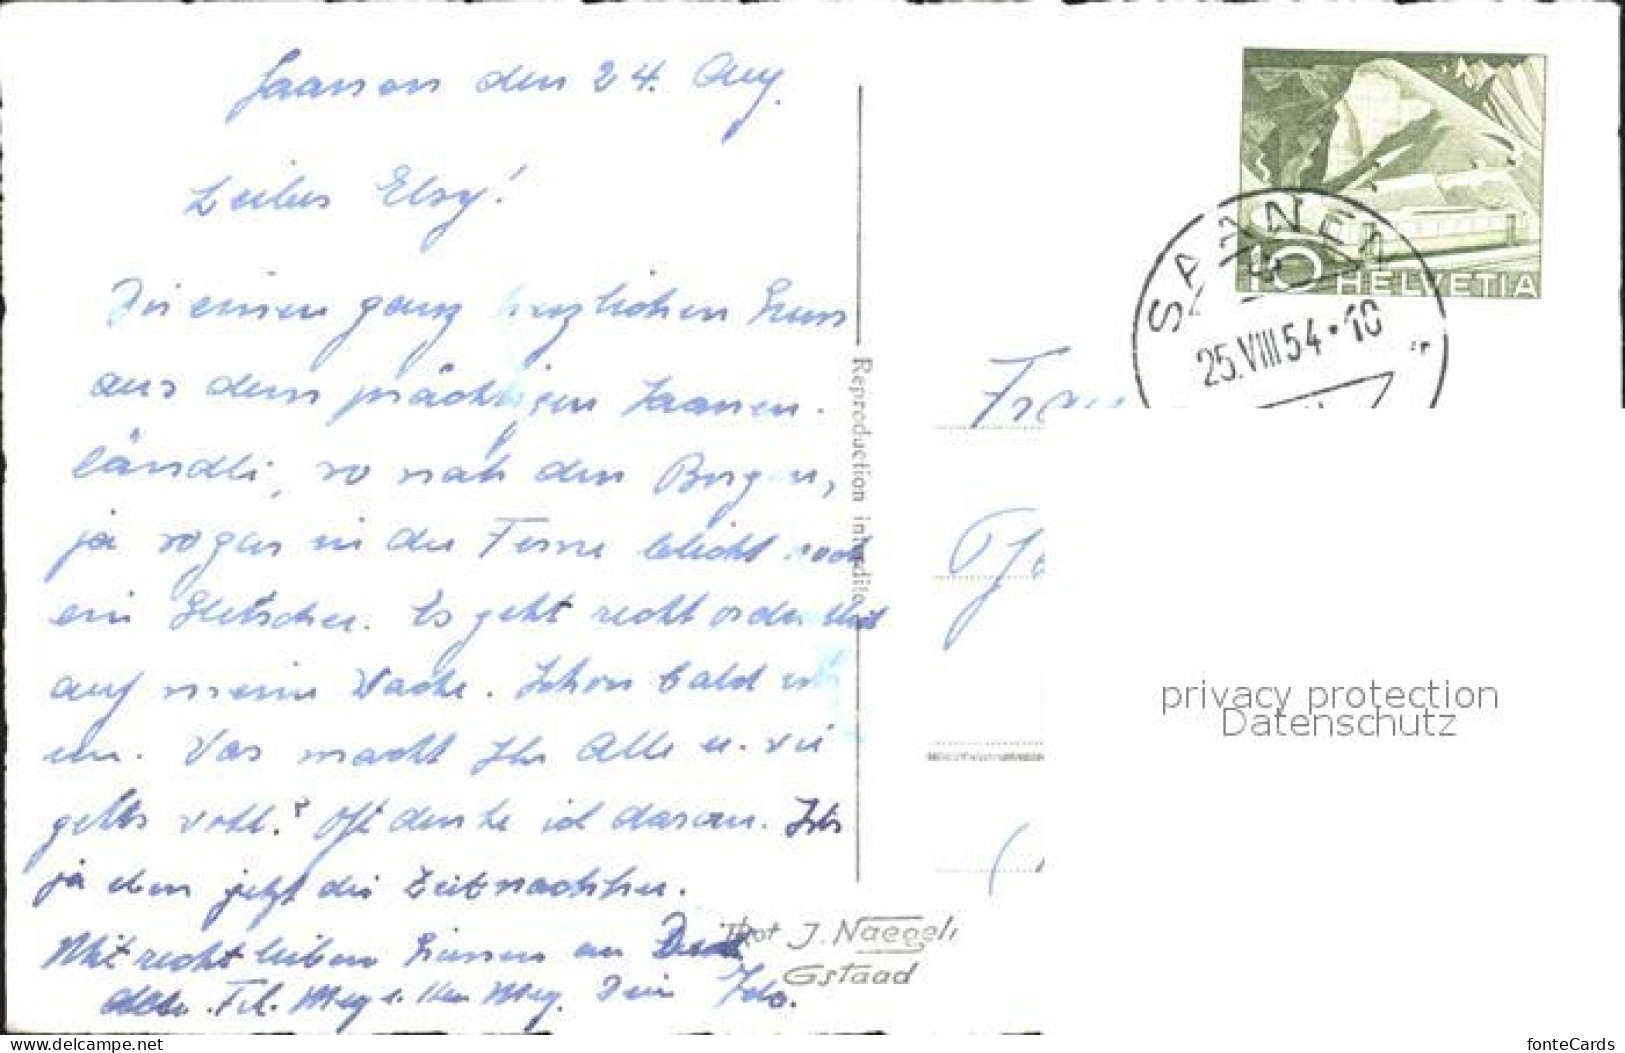 Saanen den 24. Aug.
Liebes Elsy!
Dir einen ganz herzlichen Gruss
aus dem prächtigen Saanen-
ländli, so nah den Bergen,
ja sogar in der Ferne leicht noch
ein Gletscher. Es geht recht ordentlich
auf meine Wache. Schon bald ist
um. Was macht Ihr Alle u. wie
gehts wohl? Oft denke ich daran. Ich
ja eben jetzt die Zeit nachher.
Mit recht lieben Grüssen an Dich
alle. Frl. Meyer Dein
Reproduction interdite
Phot J. Naegeli
Gstaad
SAANEN
25.VIII.54-10
10 HELVETIA
Frau
privacy protection
Datenschutz
www.delcampe.net
fonteCards